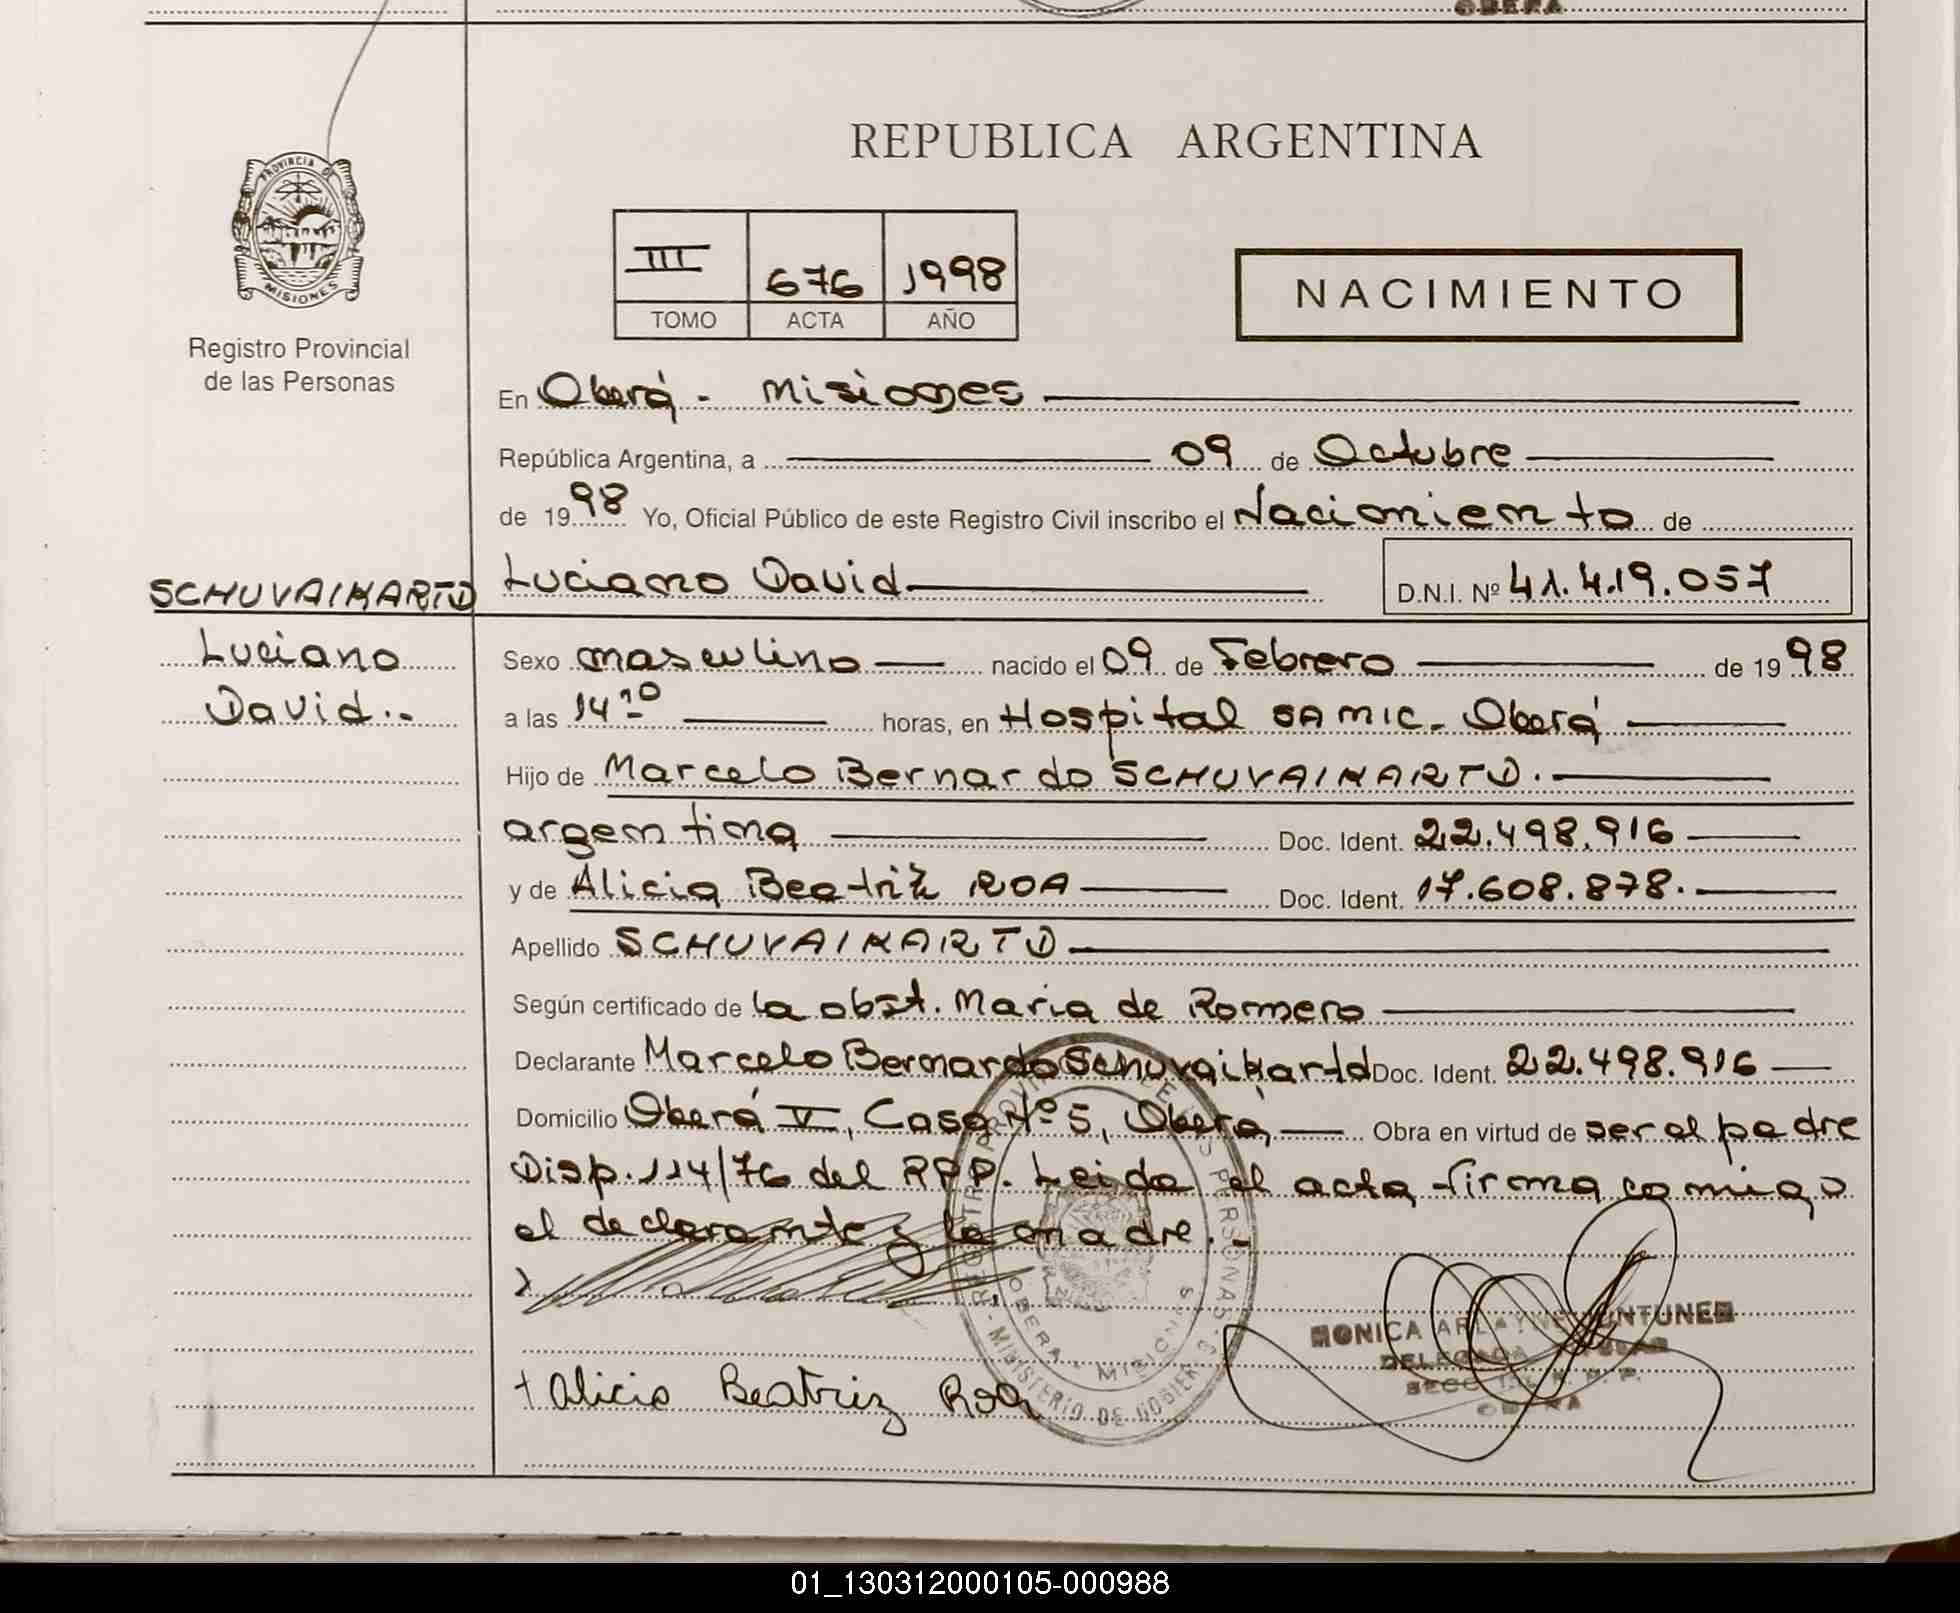 OBERA
PROVINCIA DE
MISIONES
Registro Provincial
de las Personas
REPUBLICA ARGENTINA
III 676 1998
TOMO ACTA AÑO
NACIMIENTO
En Oberá - Misiones
República Argentina, a 09 de Octubre
de 1998 Yo, Oficial Público de este Registro Civil inscribo el Nacimiento de
Luciano David D.N.I. Nº 41.419.057
SCHUVAIKARTD
Luciano
David.-
Sexo masculino nacido el 09 de Febrero de 1998
a las 14 horas, en Hospital SAMIC - Oberá
Hijo de Marcelo Bernardo SCHUVAIKARTD.
argentina Doc. Ident. 22.498.916
y de Alicia Beatriz ROA Doc. Ident. 17.608.878.
Apellido SCHUVAIKARTD
Según certificado de la obst. Maria de Romero
Declarante Marcelo Bernardo Schuvaikartd Doc. Ident. 22.498.916
Domicilio Oberá V, Casa Nº 5, Oberá, Obra en virtud de ser el padre
Disp. 114/76 del RPP. Leida el acta firma comigo
el declarante y la madre.-
Alicia Beatriz Roa
MINISTERIO DE GOBIERNO
OBERA - MISIONES
MONICA
DELEGADA
OBERA
01_130312000105-000988